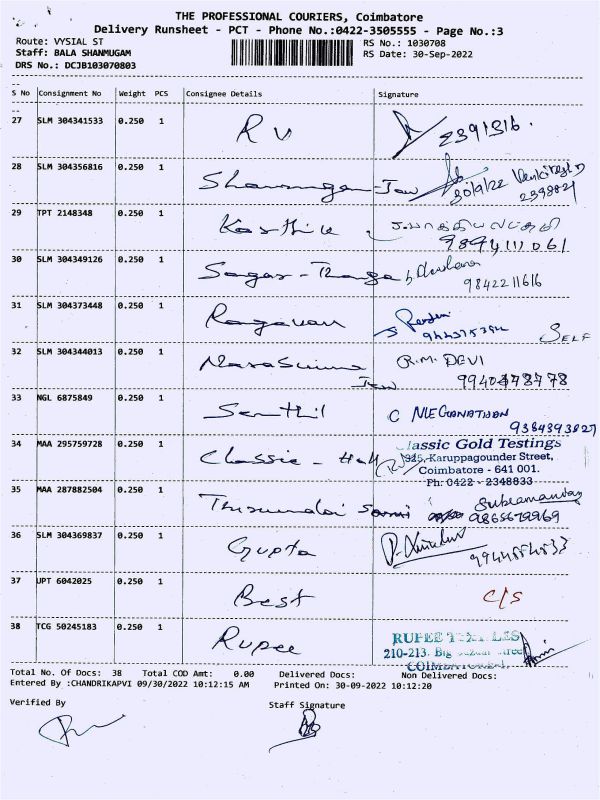 THE PROFESSIONAL COURIERS, Coimbatore
Delivery Runsheet - PCT - Phone No.:0422-3505555 - Page No.:3
Route: VYSIAL ST
RS No.: 1030708
Staff: BALA SHANMUGAM
RS Date: 30-Sep-2022
DRS No.: DCJB103070803
S No Consignment No Weight PCS Consignee Details Signature
27 SLM 304341533 0.250 1 RV 2391316.
28 SLM 304356816 0.250 1 Shanmugam - Jew 2398821
29 TPT 2148348 0.250 1 Karthik
9894111061
30 SLM 304349126 0.250 1 Sangar - Thanga
9842211616
31 SLM 304373448 0.250 1 Ragavan
SELF
32 SLM 304344013 0.250 1 R.M. DEVI
Jew 9940378778
33 NGL 6875849 0.250 1 Senthil
9384393827
34 MAA 295759728 0.250 1 Classic - Hall
lassic Gold Testings
925, Karuppagounder Street,
Coimbatore - 641 001.
Ph: 0422 - 2348833
35 MAA 287882504 0.250 1 Thirumalai Sami
9865679969
36 SLM 304369837 0.250 1 Gupta
9944884833
37 UPT 6042025 0.250 1 Best C/S
38 TCG 50245183 0.250 1 Rupee
RUPEE
210-213. Big
COIMBATORE.
Total No. Of Docs: 38 Total COD Amt: 0.00 Delivered Docs: Non Delivered Docs:
Entered By :CHANDRIKAPVI 09/30/2022 10:12:15 AM Printed On: 30-09-2022 10:12:20
Verified By Staff Signature